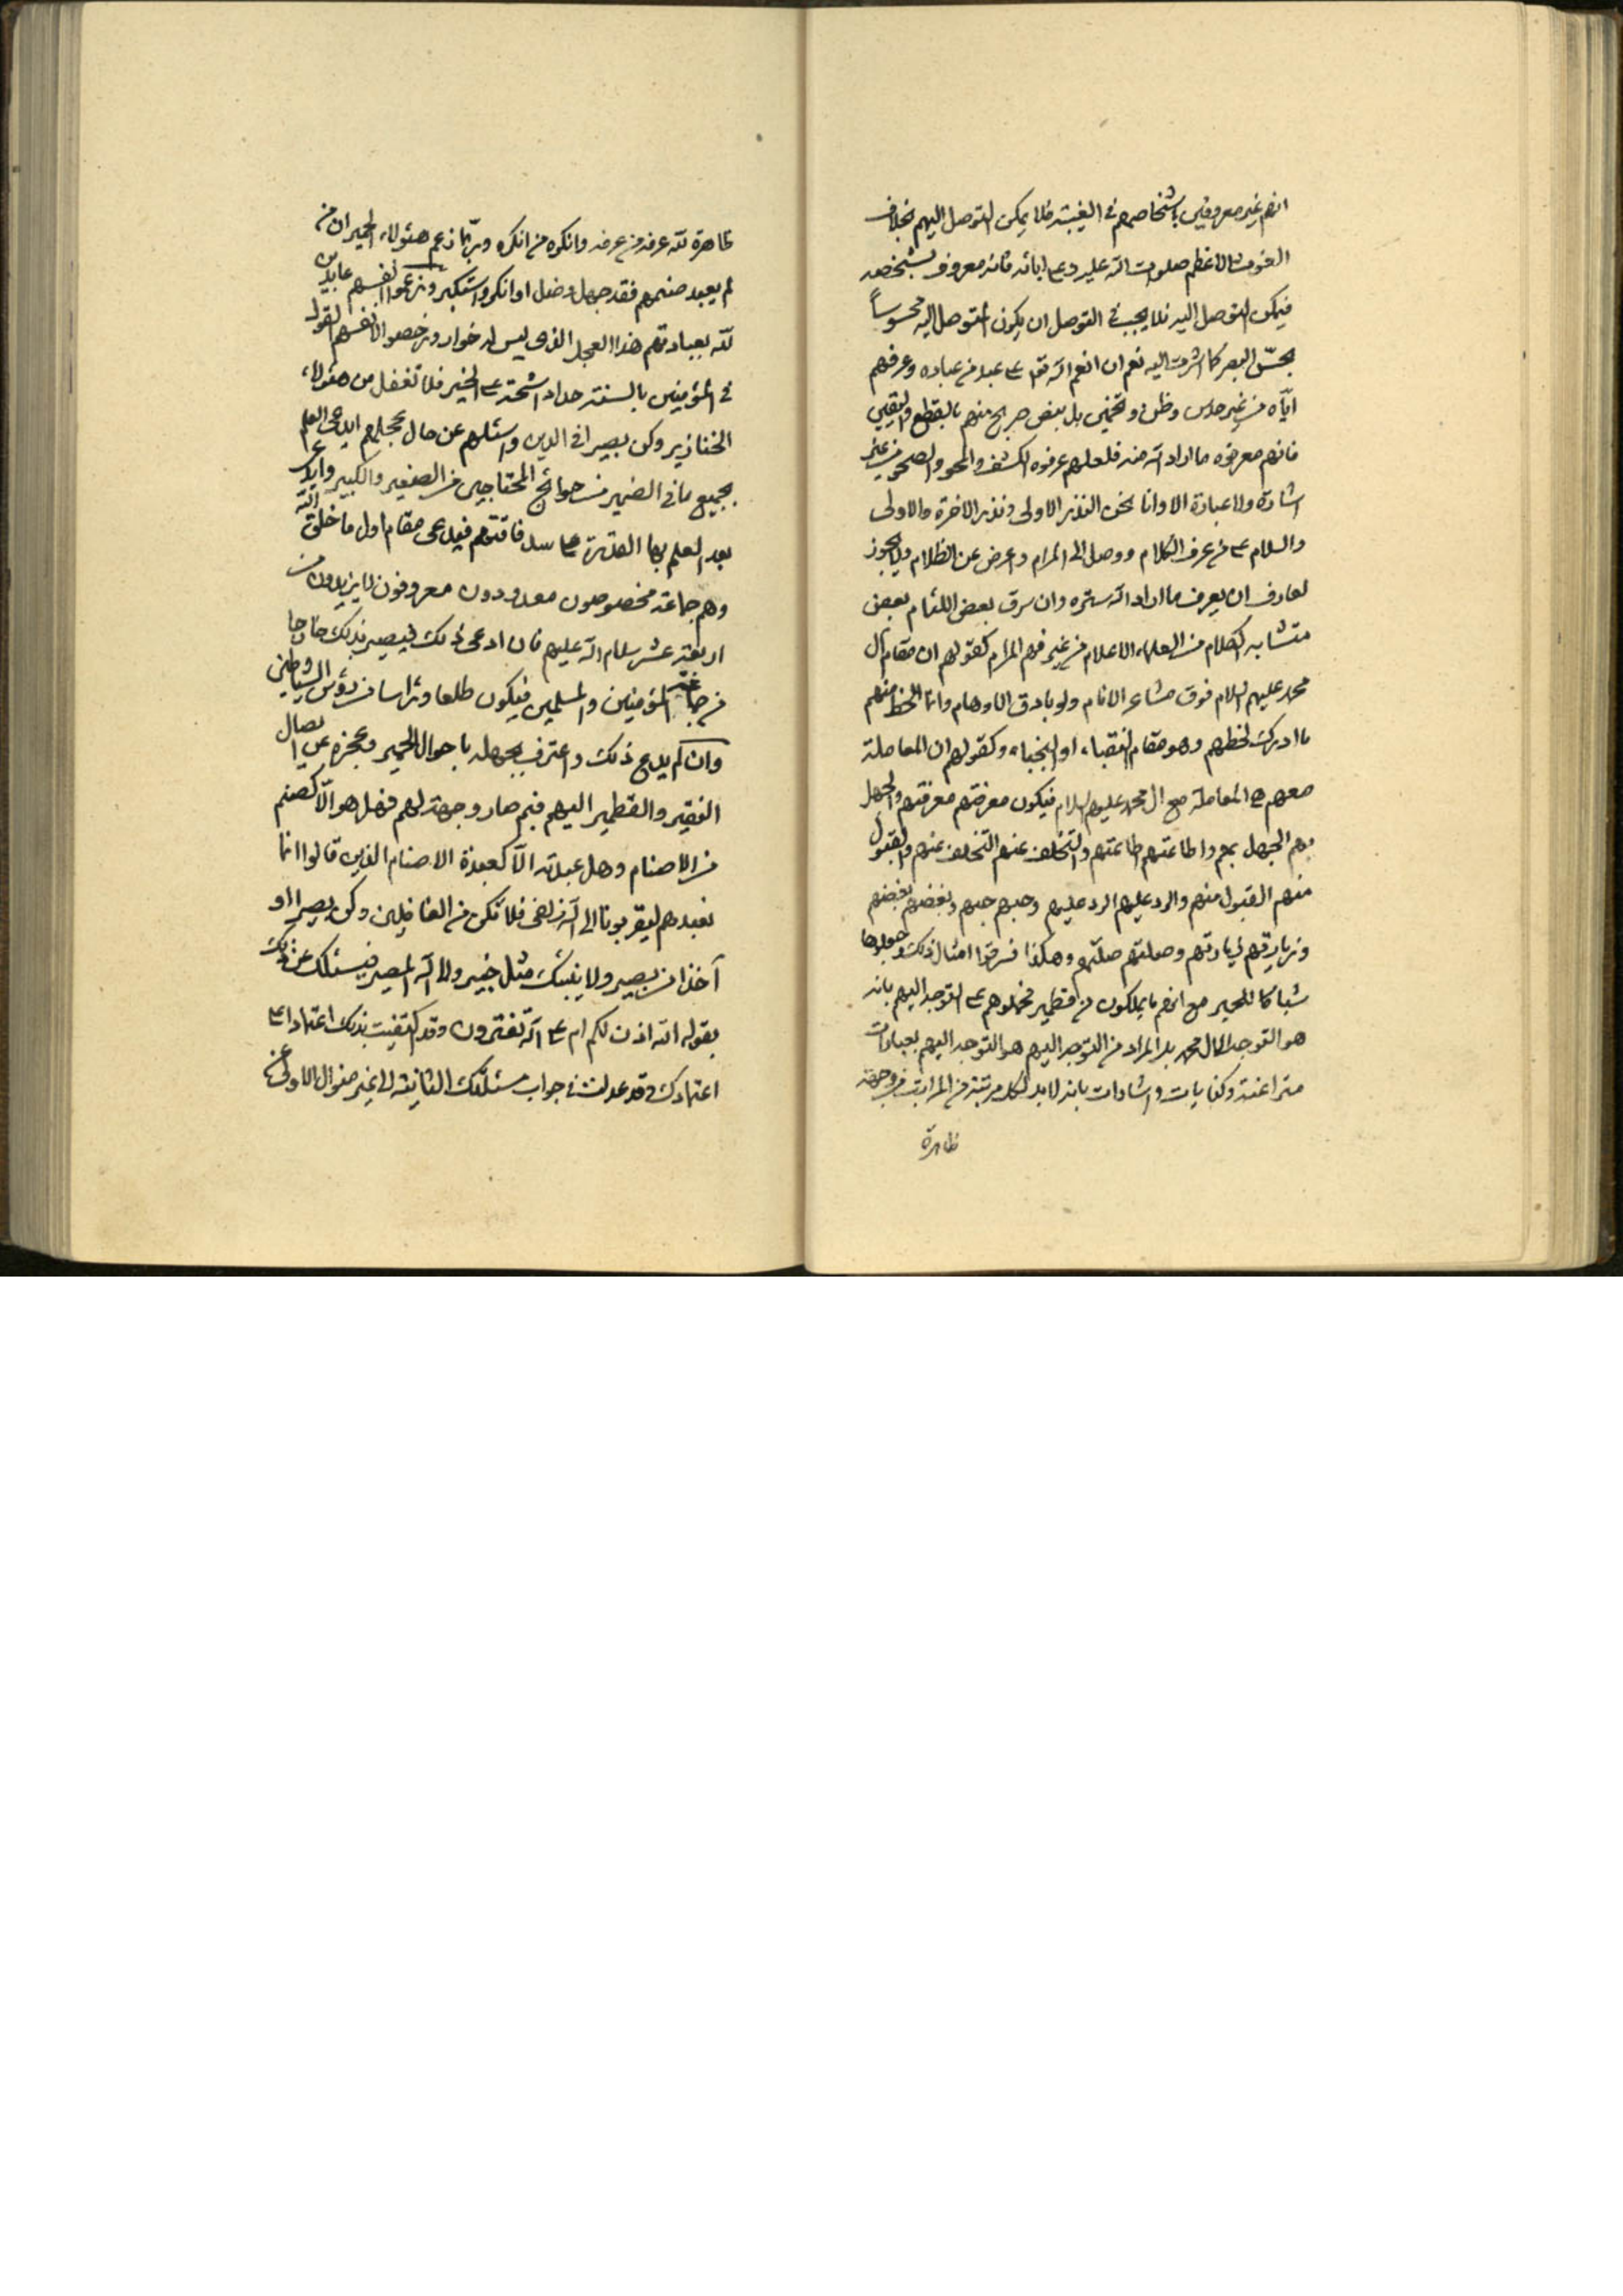 انهم غير معروفين باشخاصهم في الغيبة فلا يمكن التوصل اليهم بخلاف
الغوث الاعظم صلوات الله عليه وعلى ابائه فانه معروف بشخصه
فيمكن التوصل اليه فلا يجب في التوصل ان يكون المتوصل اليه محسوساً
بحسّ البصر كما اشرت اليه نعم ان انعم الله تع على عبد من عباده وعرفهم
ايّاه من غير حدس وظن وتخمين بل بنص صريح منهم بالقطع واليقين
فانهم معرضوه ما اراد الله منه فلعلهم عرفوه الكشف والمحو والصحو من غير
اشارة ولا عبارة الا وانا نحن النذر الاولى ونذر الاخرة والاولى
والسلام على من عرف الكلام ووصل الى المرام واعرض عن الظلام ولا يجوز
لعارف ان يعرف ما اراد الله ستره وان سرق بعض اللئام بعض
متشابه الكلام من العلماء الاعلام من غير فهم المرام كقولهم ان مقام آل
محمد عليهم السلام فوق مشاعر الانام ولو بادق الاوهام وانما الحظ منهم
ما ادرك لحظهم وهو مقام النقباء او النجباء وكقولهم ان المعاملة
معهم هي المعاملة مع ال محمد عليهم السلام فيكون معرفتهم معرفتهم والجهل
بهم الجهل بهم واطاعتهم اطاعتهم والتخلف عنهم التخلف عنهم والقبول
منهم القبول منهم والرد عليهم الرد عليهم وحبهم حبهم وبغضهم بغضهم
وزيارتهم زيارتهم وصلتهم صلتهم وهكذا فسرقوا امثال ذلك وجعلوها
شباكا للحمير مع انهم ما يملكون من قطمير فحملوهم على التوجه اليهم بانه
هو التوجه الى ال محمد بل المراد من التوجه اليهم هو التوجه اليهم بعبارات
متراغنة وكنايات واشارات بانه لا بد لكل مرتبة من المراتب من وجهة
ظاهرة
ظاهرة لله عرفه من عرفه وانكره من انكره وربّما زعم هئولاء الحمير ان من
لم يعبد صنمهم فقد جهل وضل او انكر واستكبر وزعموا انفسهم عابدين
لله بعبادتهم هذا العجل الذي ليس له خوار ورخصوا لانفسهم القول
في المؤمنين بالسنة حداد اشحّة على الخير فلا تغفل من هئولاء
الخنازير وكن بصيرا في الدين واسئلهم عن حال عجلهم ايدعى العلم
بجميع ما في الضمير من حوائج المحتاجين من الصغير والكبير وايدعى
بعد العلم بها القدرة على سد فاقتهم فيدعى مقام اول ما خلق الله
وهم جماعة مخصوصون معدودون معروفون لا يزيدون من
اربعة عشر سلام الله عليهم فان ادعى ذلك فيصير بذلك خارجا
من جماعة المؤمنين والمسلمين فيكون طلعا وراسا من رؤس الشياطين
وان لم يدع ذلك واعترف بجهله باحوال الحمير وعجزه عن ايصال
النقير والقطمير اليهم فبم صار وجهة لهم فهل هو الّا كصنم
من الاصنام وهل عبدته الّا كعبدة الاصنام الذين قالوا انما
نعبدهم ليقربونا الى الله زلفى فلا تكن من الغافلين وكن بصيرا او
آخذا من بصير ولا ينبئك مثل خبير والى الله المصير فيسئلك عن ذلك
بقوله الله اذن لكم ام على الله تفترون وقد اكتفيت بذلك اعتمادا على
اعتمادك وقد عدلت في جواب مسئلتك الثانية الى غير منوال الاولى عن